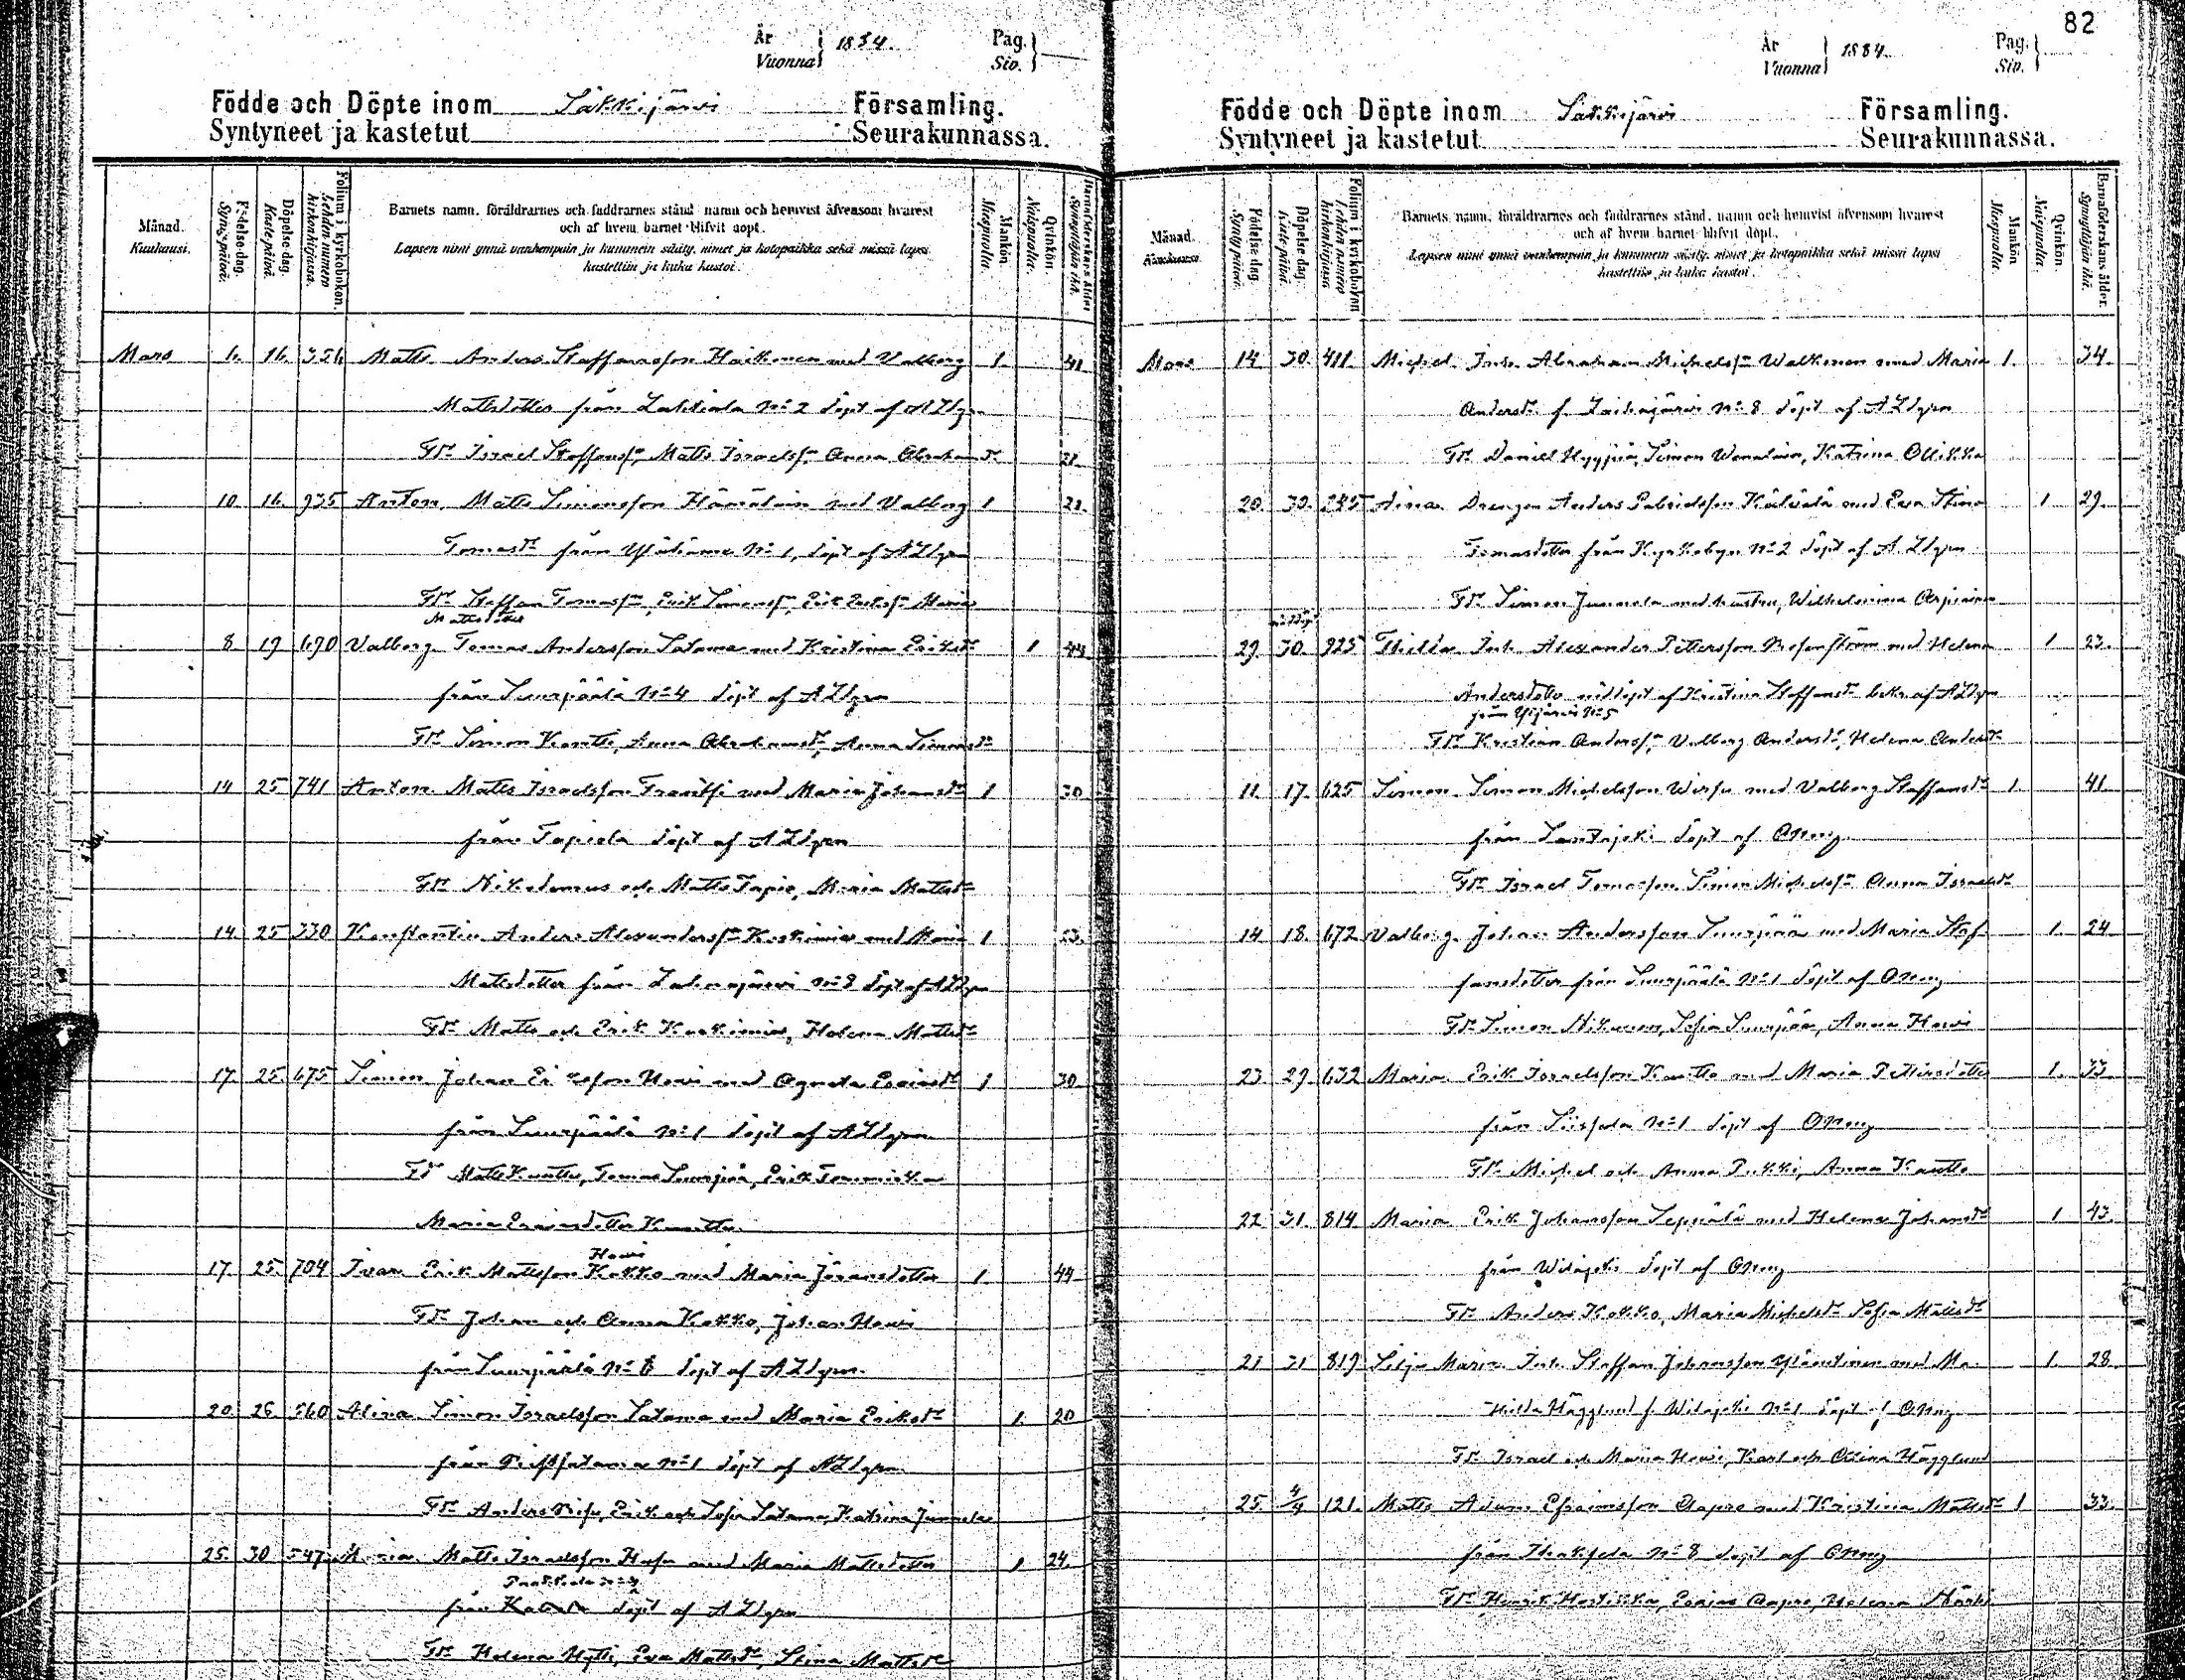 År 1884. Pag.
Vuonna Siv.
Födde och Döpte inom Säkkijärvi Församling.
Syntyneet ja kastetut Seurakunnassa.
Månad. Kuukausi.
Födelse-dag. Syntymäpäivä.
Döpelse-dag. Kastepäivä.
Folium i kyrkoboken. Lehden numero kirkonkirjassa.
Barnets namn, föräldrarnes och faddrarnes stånd, namn och hemvist äfvensom hvarest
och af hvem barnet blifvit döpt.
Lapsen nimi ynnä vanhempain ja kummein sääty, nimet ja kotopaikka sekä missä lapsi
kastettiin ja kuka kastoi.
Mankön. Miespuolia.
Qvinkön. Naispuolia.
Barnaföderskans ålder. Synnyttäjän ikä.
Mars 1. 16. 356 Matts. Anders Staffansson Haikonen med Valborg 1. 41
Mattsdotter från Lahkiala No 2 döpt af A Ldgren
Fdr Israel Staffansſn, Matts Israelsſn Anna Abrahamsdr
10. 16. 935 Anton. Matts Simonsson Hämäläin med Valborg 1
Tomasdr från Yläkämä No 1, döpt af A Ldgren
Fdr Staffan Tomasſn, Erik Simonsſn, Erik Eriksſn Maria
Mattsdotter
8 19 690 Valborg Tomas Andersson Satama med Kristina Eriksdr 1 44
från Suurpäälä No 4 döpt af A Ldgren
Fdr Simon Kantti, Anna Abrahamsdr, Anna Simonsdr
14 25 741 Anton Matts Israelsson Frantsi med Maria Johansdr 1 30
från Tapiola döpt af A Ldgren
Fdr Nikodemus och Matts Tapio, Maria Mattsdr
14 25 330 Konstantin Anders Alexandersſn Koskimies med Maria 1
Mattsdotter från Lahnajärvi No 8 döpt af A Ldgren
Fdr Matts och Erik Koskimies, Helena Mattsdr
17. 25. 675 Simon Johan Eriksson Howi med Agneta Esaiasdr 1 30
från Suurpäälä No 1 döpt af A Ldgren
Fdr Matts Kanttu, Tomas Suurpää, Erik Tommiska
Maria Esaiasdotter Kanttu
Howi
17. 25. 704 Ivar Erik Mattsson Kokko med Maria Göransdotter 1. 44
Fdr Johan och Anna Kokko, Johan Howi
från Suurpäälä No 6 döpt af A Ldgren
20. 26. 560 Alina Simon Israelsson Satama med Maria Eriksdr 1. 20
från döpt af A Ldgren
Fdr Anders Erik och Sofia Satama, Katrina Junnela
25. 30 547 Maria Matts Israelsson med Maria Mattsdotter 1 24.
från döpt af A Ldgren
Fdr Helena Hytti, Eva Mattsdr, Stina Mattsdr
82
År 1884. Pag.
Vuonna Siv.
Födde och Döpte inom Säkkijärvi Församling.
Syntyneet ja kastetut Seurakunnassa.
Månad. Kuukausi.
Födelse-dag. Syntymäpäivä.
Döpelse-dag. Kastepäivä.
Folium i kyrkoboken. Lehden numero kirkonkirjassa.
Barnets namn, föräldrarnes och faddrarnes stånd, namn och hemvist äfvensom hvarest
och af hvem barnet blifvit döpt.
Lapsen nimi ynnä vanhempain ja kummein sääty, nimet ja kotopaikka sekä missä lapsi
kastettiin ja kuka kastoi.
Mankön. Miespuolia.
Qvinkön. Naispuolia.
Barnaföderskans ålder. Synnyttäjän ikä.
Mars 14 30. 411. Michel. Inh. Abraham Michelsſn Walkonen med Maria 1. 34.
Andersdr f. Laihajärvi No 8 döpt af A Ldgren
Fdr Daniel Hyyppiä, Simon Wanalain, Katrina Ollikka
20. 30. 245 Aina Drengen Anders Gabrielsson med Eva Stina 1 29.
Tomasdotter från Kyrkobyn No 2 döpt af A Ldgren
Fdr Simon Junnola med hustru, Wilhelmina Arpiainen
nöddöpt
29. 30. 925 Thilda Inh. Alexander Pettersson Rosenström med Helena 1 23.
Andersdotter nöddöpt af Kristina Staffansdr bekr. af A Ldgren
från Ylijärvi No 5
Fdr Kristian Andersſn, Valborg Andersdr, Helena Andersdr
11. 17. 625 Simon. Simon Michelsson Wirsu med Valborg Staffansdr 1. 41.
från Santajoki döpt af
Fdr Israel Tomasson, Simon Michelsſn Anna Israelsdr
14 18. 672 Valborg. Johan Andersson Suurpää med Maria Staf- 1. 24
fansdotter från Suurpäälä No 1 döpt af
Fdr Simon Nikunen, Sofia Suurpää, Anna Howi
23 29. 632 Maria Erik Israelsson Kanttu med Maria Pettersdotter 1. 33.
från No 1 döpt af
Fdr Michel och Anna Pukki, Anna Kanttu
22 31. 814 Maria Erik Johansson Seppälä med Helena Johansdr 1 43.
från Wilajoki döpt af
Fdr Anders Kokko, Maria Michelsdr Sofia Mattsdr
21 31 819 Silja Maria Inh. Staffan Johansson Yläoutinen med Ma- 1. 28.
thilda Hägglund f. Wilajoki No 1 döpt af
Fdr Israel och Maria Howi, Karl och Hägglund
25. 4/4 121. Matts Adam Efraimsson Aapro med Kristina Mattsdr 1 33.
från No 8 döpt af
Fdr Henrik Hostikka, Esaias Aapro, Helena Närhi